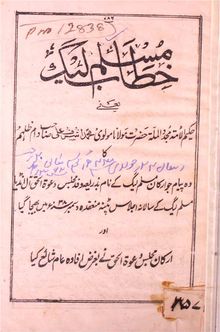 P no 12838
۷۸۶
خطاب مسلم لیگ
یعنی
حکیم الامۃ مجدد الملۃ حضرت مولانا مولوی محمد اشرف علی صاحب دام ظلہم
کا
وہ پیام جو ارکان مسلم لیگ کے نام بذریعہ وفد مجلس دعوۃ الحق
مسلم لیگ کے سالانہ اجلاس پٹنہ منعقدہ دسمبر ۳۸ء میں بھیجا گیا
اور
ارکان مجلس دعوۃ الحق نے بغرض افادہ عام شائع کیا